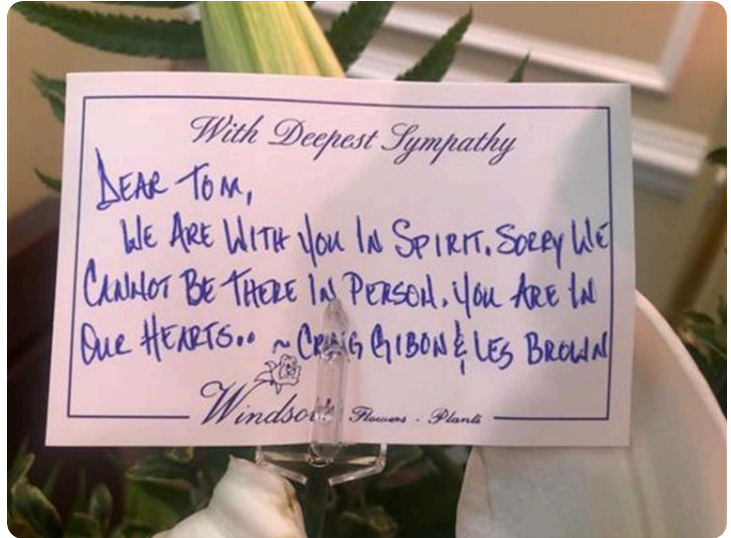 With Deepest Sympathy
DEAR TOM,
WE ARE WITH YOU IN SPIRIT. SORRY WE
CANNOT BE THERE IN PERSON. YOU ARE IN
OUR HEARTS.. ~ CRAIG GIBON & LES BROWN
Windsor Flowers . Plants